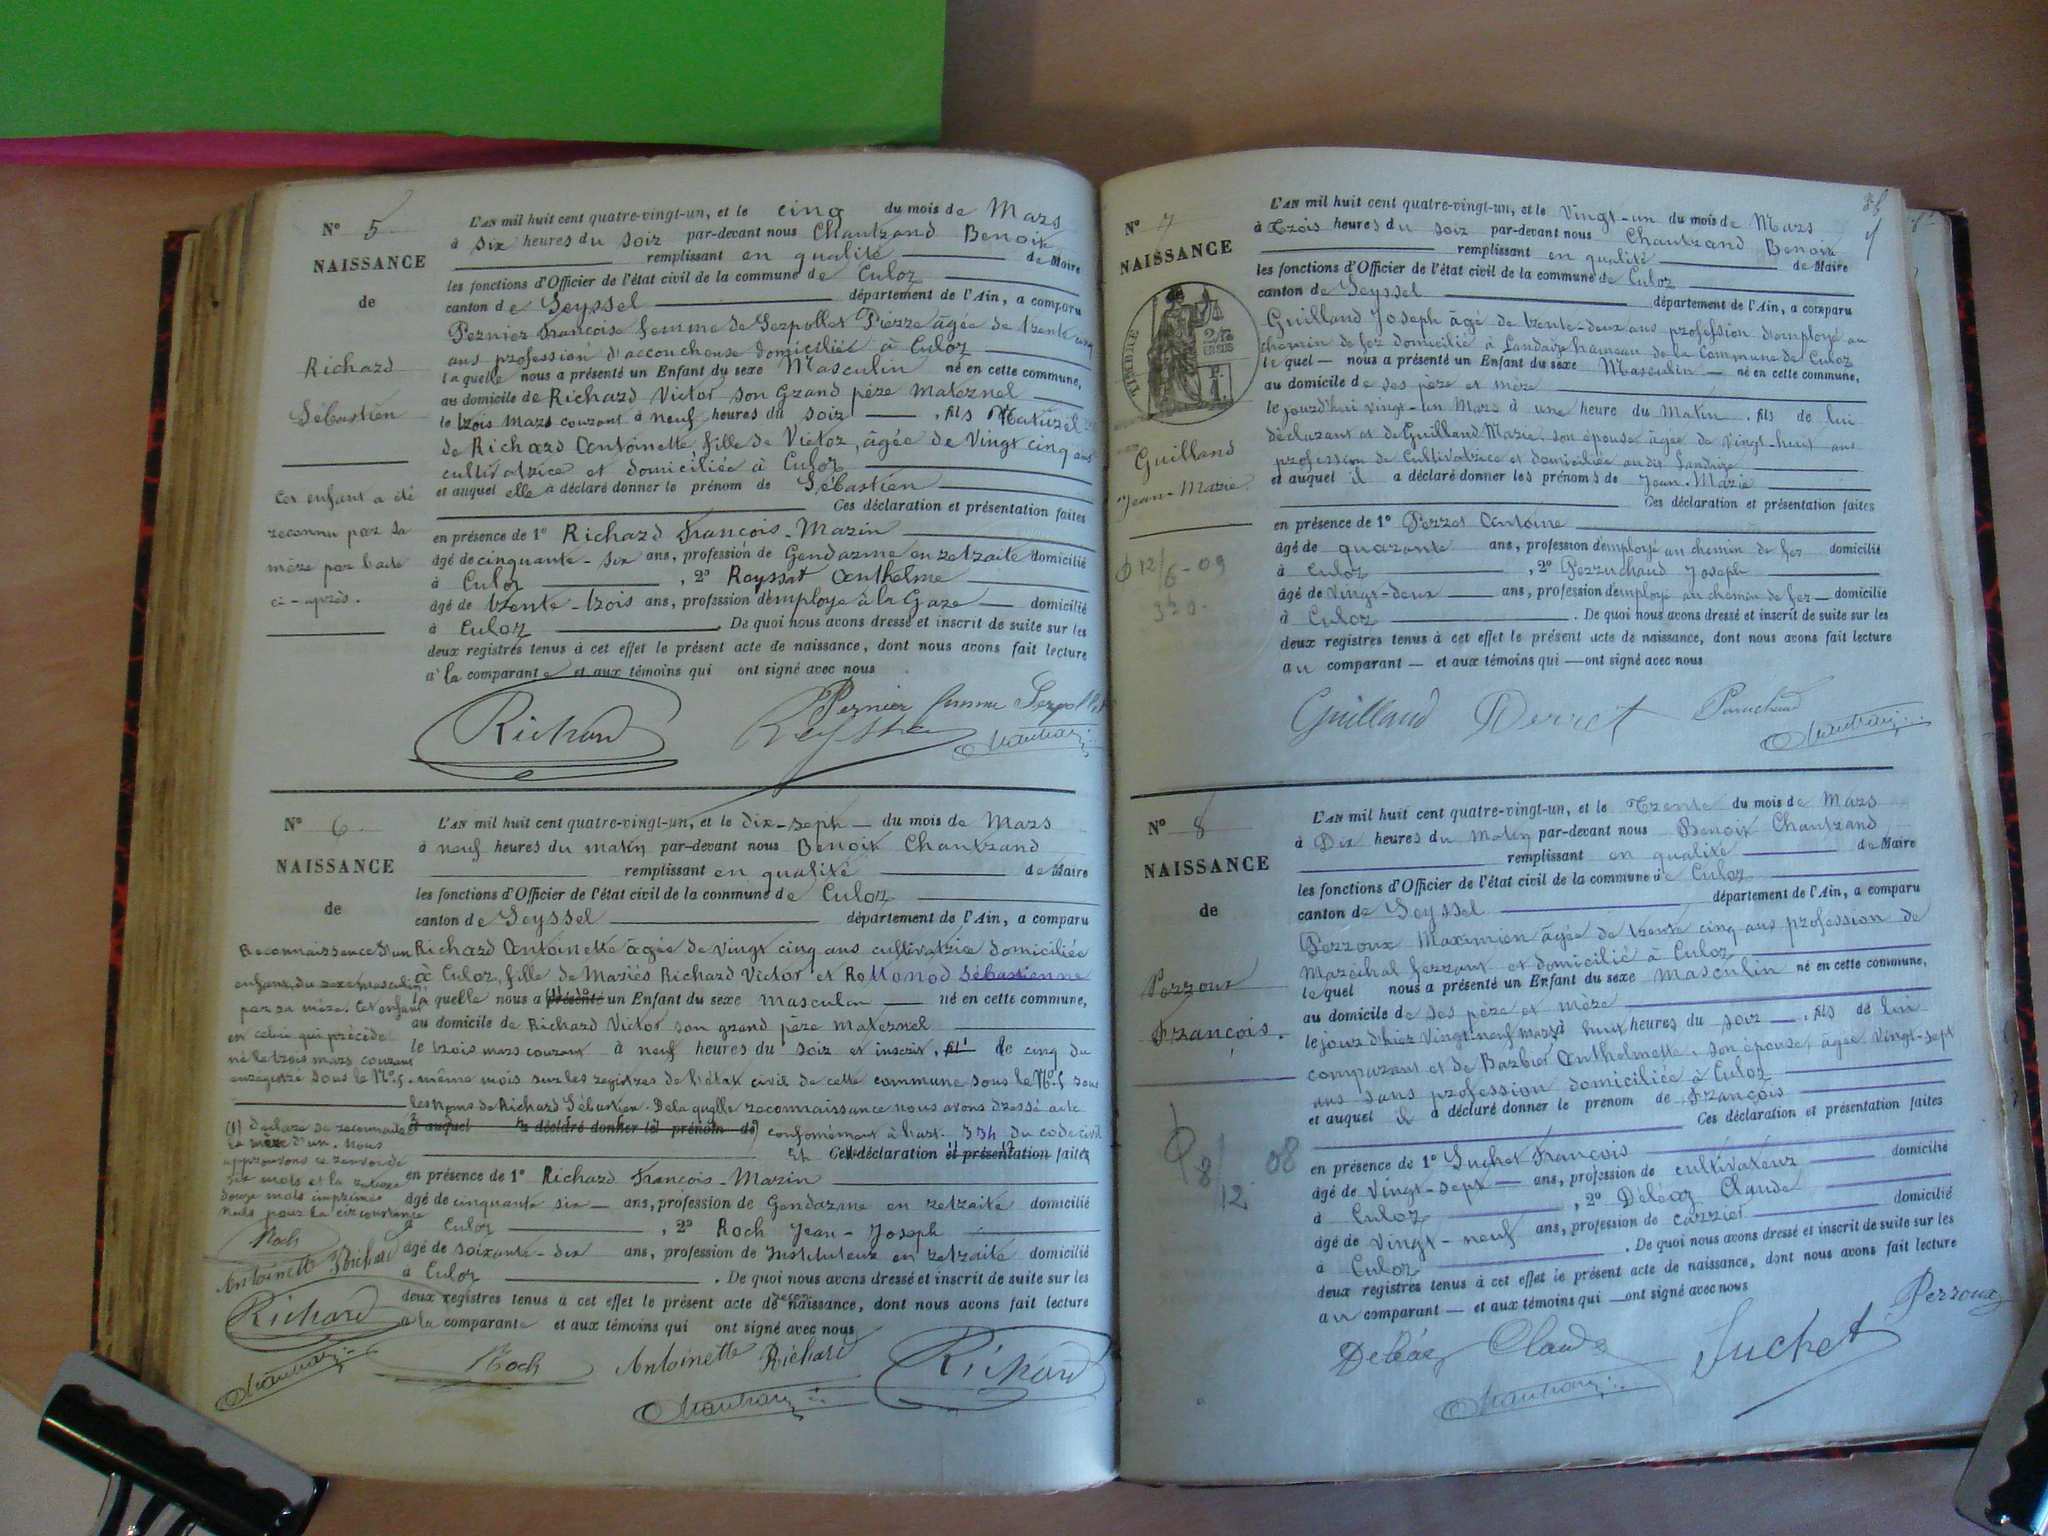 N° 5
NAISSANCE
de
Richard
Sébastien
Cet enfant a été
reconnu par sa
mère par l'acte
ci-après.
L'AN mil huit cent quatre-vingt-un, et le cinq du mois de Mars
à six heures du soir par-devant nous Chantrand Benoit
remplissant en qualité de Maire
les fonctions d'Officier de l'état civil de la commune de Culoz
canton de Seyssel département de l'Ain, a comparu
Pernier Françoise femme de Serpollet Pierre âgée de trente cinq
ans profession d'accoucheuse domiciliée à Culoz
laquelle nous a présenté un Enfant du sexe Masculin né en cette commune,
au domicile de Richard Victor son Grand père Maternel
le trois Mars courant à neuf heures du soir , fils Naturel
de Richard Antoinette, fille de Victor, âgée de Vingt cinq ans
cultivatrice et domiciliée à Culoz
et auquel elle a déclaré donner le prénom de Sébastien
Ces déclaration et présentation faites
en présence de 1° Richard François-Marin
âgé de cinquante-six ans, profession de Gendarme en retraite domicilié
à Culoz , 2° Reysset Anthelme
âgé de trente-trois ans, profession d'employé à la Gare domicilié
à Culoz . De quoi nous avons dressé et inscrit de suite sur les
deux registres tenus à cet effet le présent acte de naissance, dont nous avons fait lecture
à la comparante et aux témoins qui ont signé avec nous
Pernier femme Serpollet
Richard
Chantrand
N° 6
NAISSANCE
de
Reconnaissance d'un
enfant du sexe masculin
par sa mère. Cet enfant
est celui qui précède
né le trois mars courant
enregistré sous le N° 5.
(1) déclare de reconnaitre
la mère d'un. Nous
approuvons ce renvoi de
six mots et la rature
douze mots imprimés
nuls pour la circonstance
Roch
Antoinette Richard
Richard
Chantrand
L'AN mil huit cent quatre-vingt-un, et le dix-sept du mois de Mars
à neuf heures du matin par-devant nous Benoit Chantrand
remplissant en qualité de Maire
les fonctions d'Officier de l'état civil de la commune de Culoz
canton de Seyssel département de l'Ain, a comparu
Richard Antoinette âgée de vingt cinq ans cultivatrice domiciliée
à Culoz, fille de Mariés Richard Victor et Monod Sébastienne
laquelle nous a (1) présenté un Enfant du sexe masculin né en cette commune,
au domicile de Richard Victor son grand père Maternel
le trois mars courant à neuf heures du soir et inscrit, fil le cinq du
même mois sur les registres de l'état civil de cette commune sous le N° 5 sous
les noms de Richard Sébastien. De laquelle reconnaissance nous avons dressé acte
et auquel a déclaré donner le prénom de conformément à l'art. 334 du code civil
Cette déclaration et présentation faite
en présence de 1° Richard François-Marin
âgé de cinquante six ans, profession de Gendarme en retraite domicilié
à Culoz , 2° Roch Jean-Joseph
âgé de soixante-dix ans, profession de Instituteur en retraite domicilié
à Culoz . De quoi nous avons dressé et inscrit de suite sur les
deux registres tenus à cet effet le présent acte de naissance, dont nous avons fait lecture
à la comparante et aux témoins qui ont signé avec nous
Roch Antoinette Richard Richard
Chantrand
N° 7
NAISSANCE
TIMBRE
Guilland
Jean-Marie
12/6-09
L'AN mil huit cent quatre-vingt-un, et le Vingt-un du mois de Mars
à Trois heures du soir par-devant nous Chantrand Benoit
remplissant en qualité de Maire
les fonctions d'Officier de l'état civil de la commune de Culoz
canton de Seyssel département de l'Ain, a comparu
Guilland Joseph âgé de trente-deux ans profession d'employé au
chemin de fer domicilié à Landaize hameau de la Commune de Culoz
lequel nous a présenté un Enfant du sexe Masculin né en cette commune,
au domicile de ses père et mère
le jourd'hui vingt-un Mars à une heure du Matin . fils de lui
déclarant et de Guilland Marie, son épouse âgée de vingt-huit ans
profession de Cultivatrice et domiciliée audit Landaize
et auquel il a déclaré donner les prénoms de Jean-Marie
Ces déclaration et présentation faites
en présence de 1° Perret Antoine
âgé de quarante ans, profession d'employé au chemin de fer domicilié
à Culoz , 2° Perruchaud Joseph
âgé de vingt-deux ans, profession d'employé au chemin de fer domicilié
à Culoz . De quoi nous avons dressé et inscrit de suite sur les
deux registres tenus à cet effet le présent acte de naissance, dont nous avons fait lecture
au comparant et aux témoins qui ont signé avec nous
Guilland Perret Perruchaud
Chantrand
N° 8
NAISSANCE
de
Perroux
François.
8/12 08
L'AN mil huit cent quatre-vingt-un, et le Trente du mois de Mars
à Dix heures du Matin par-devant nous Benoit Chantrand
remplissant en qualité de Maire
les fonctions d'Officier de l'état civil de la commune de Culoz
canton de Seyssel département de l'Ain, a comparu
Perroux Maximien âgée de trente cinq ans profession de
Maréchal ferrant et domicilié à Culoz
lequel nous a présenté un Enfant du sexe Masculin né en cette commune,
au domicile de ses père et mère
le jour d'hier Vingt neuf mars à huit heures du soir , fils de lui
comparant et de Barbier Anthelmette, son épouse, âgée Vingt-sept
ans sans profession domiciliée à Culoz
et auquel il a déclaré donner le prénom de François
Ces déclaration et présentation faites
en présence de 1° Suchet François
âgé de Vingt-sept ans, profession de cultivateur domicilié
à Culoz , 2° Déléaz Claude
âgé de Vingt-neuf ans, profession de carrier domicilié
à Culoz . De quoi nous avons dressé et inscrit de suite sur les
deux registres tenus à cet effet le présent acte de naissance, dont nous avons fait lecture
au comparant et aux témoins qui ont signé avec nous
Perroux
Déléaz Claude Suchet
Chantrand